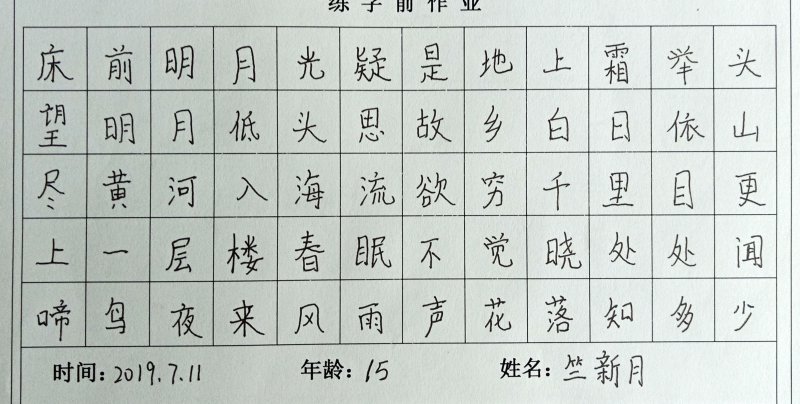 练字前作业
床前明月光疑是地上霜举头
望明月低头思故乡白日依山
尽黄河入海流欲穷千里目更
上一层楼春眠不觉晓处处闻
啼鸟夜来风雨声花落知多少
时间:2019.7.11 年龄:15 姓名:竺新月